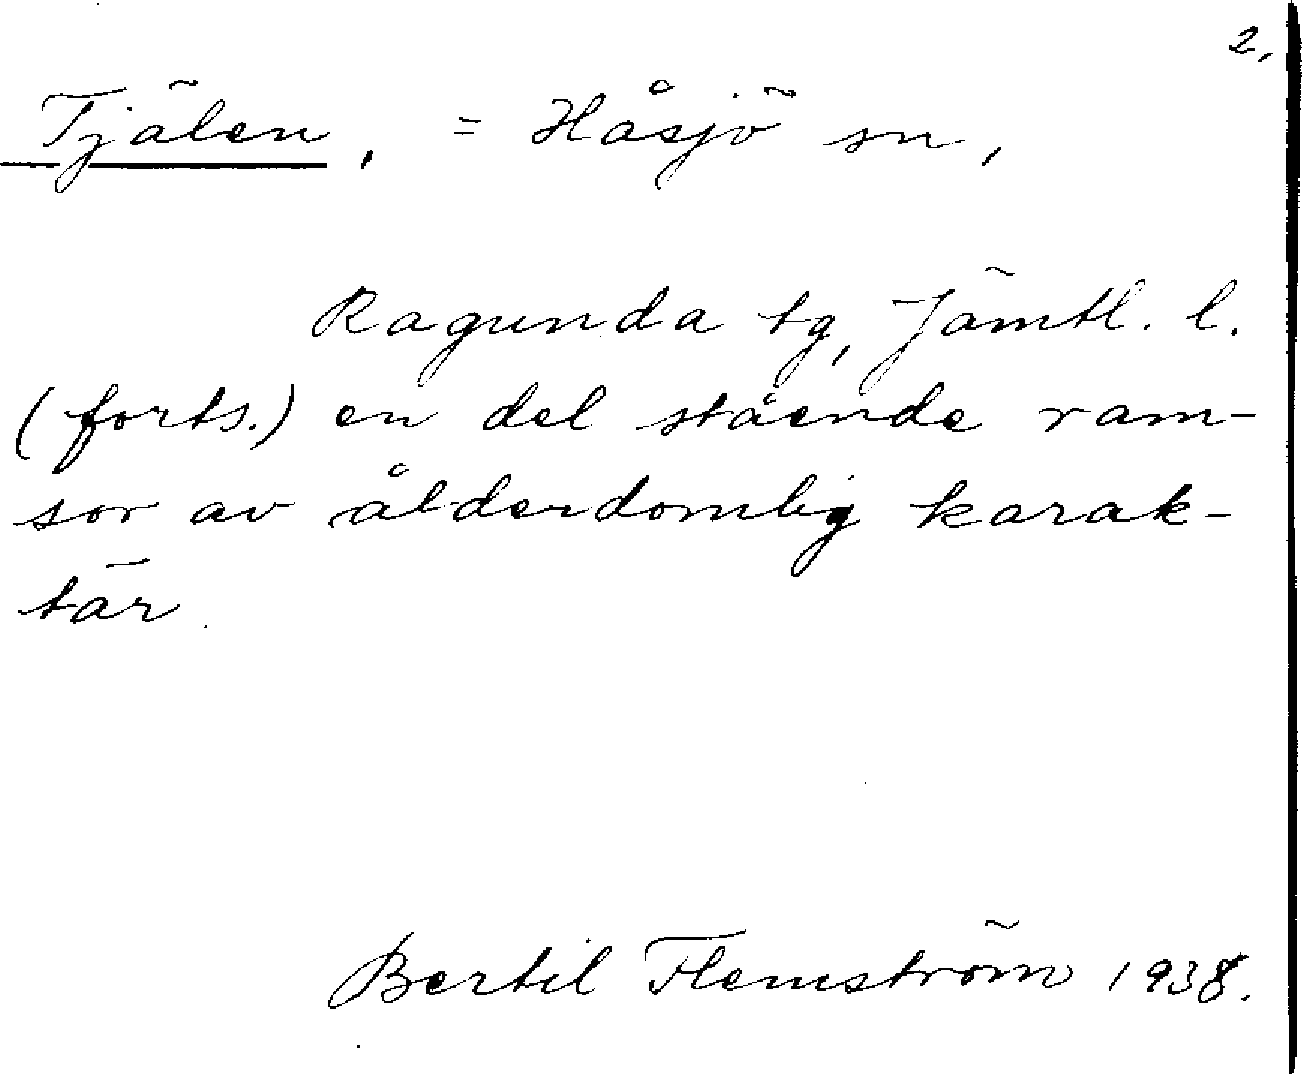 2,
Tjälen, = Håsjö sn,
Ragunda tg, Jämtl. l.
(forts.) en del stående ram-
sor av ålderdomlig karak-
tär.
Bertil Flemström 1938.